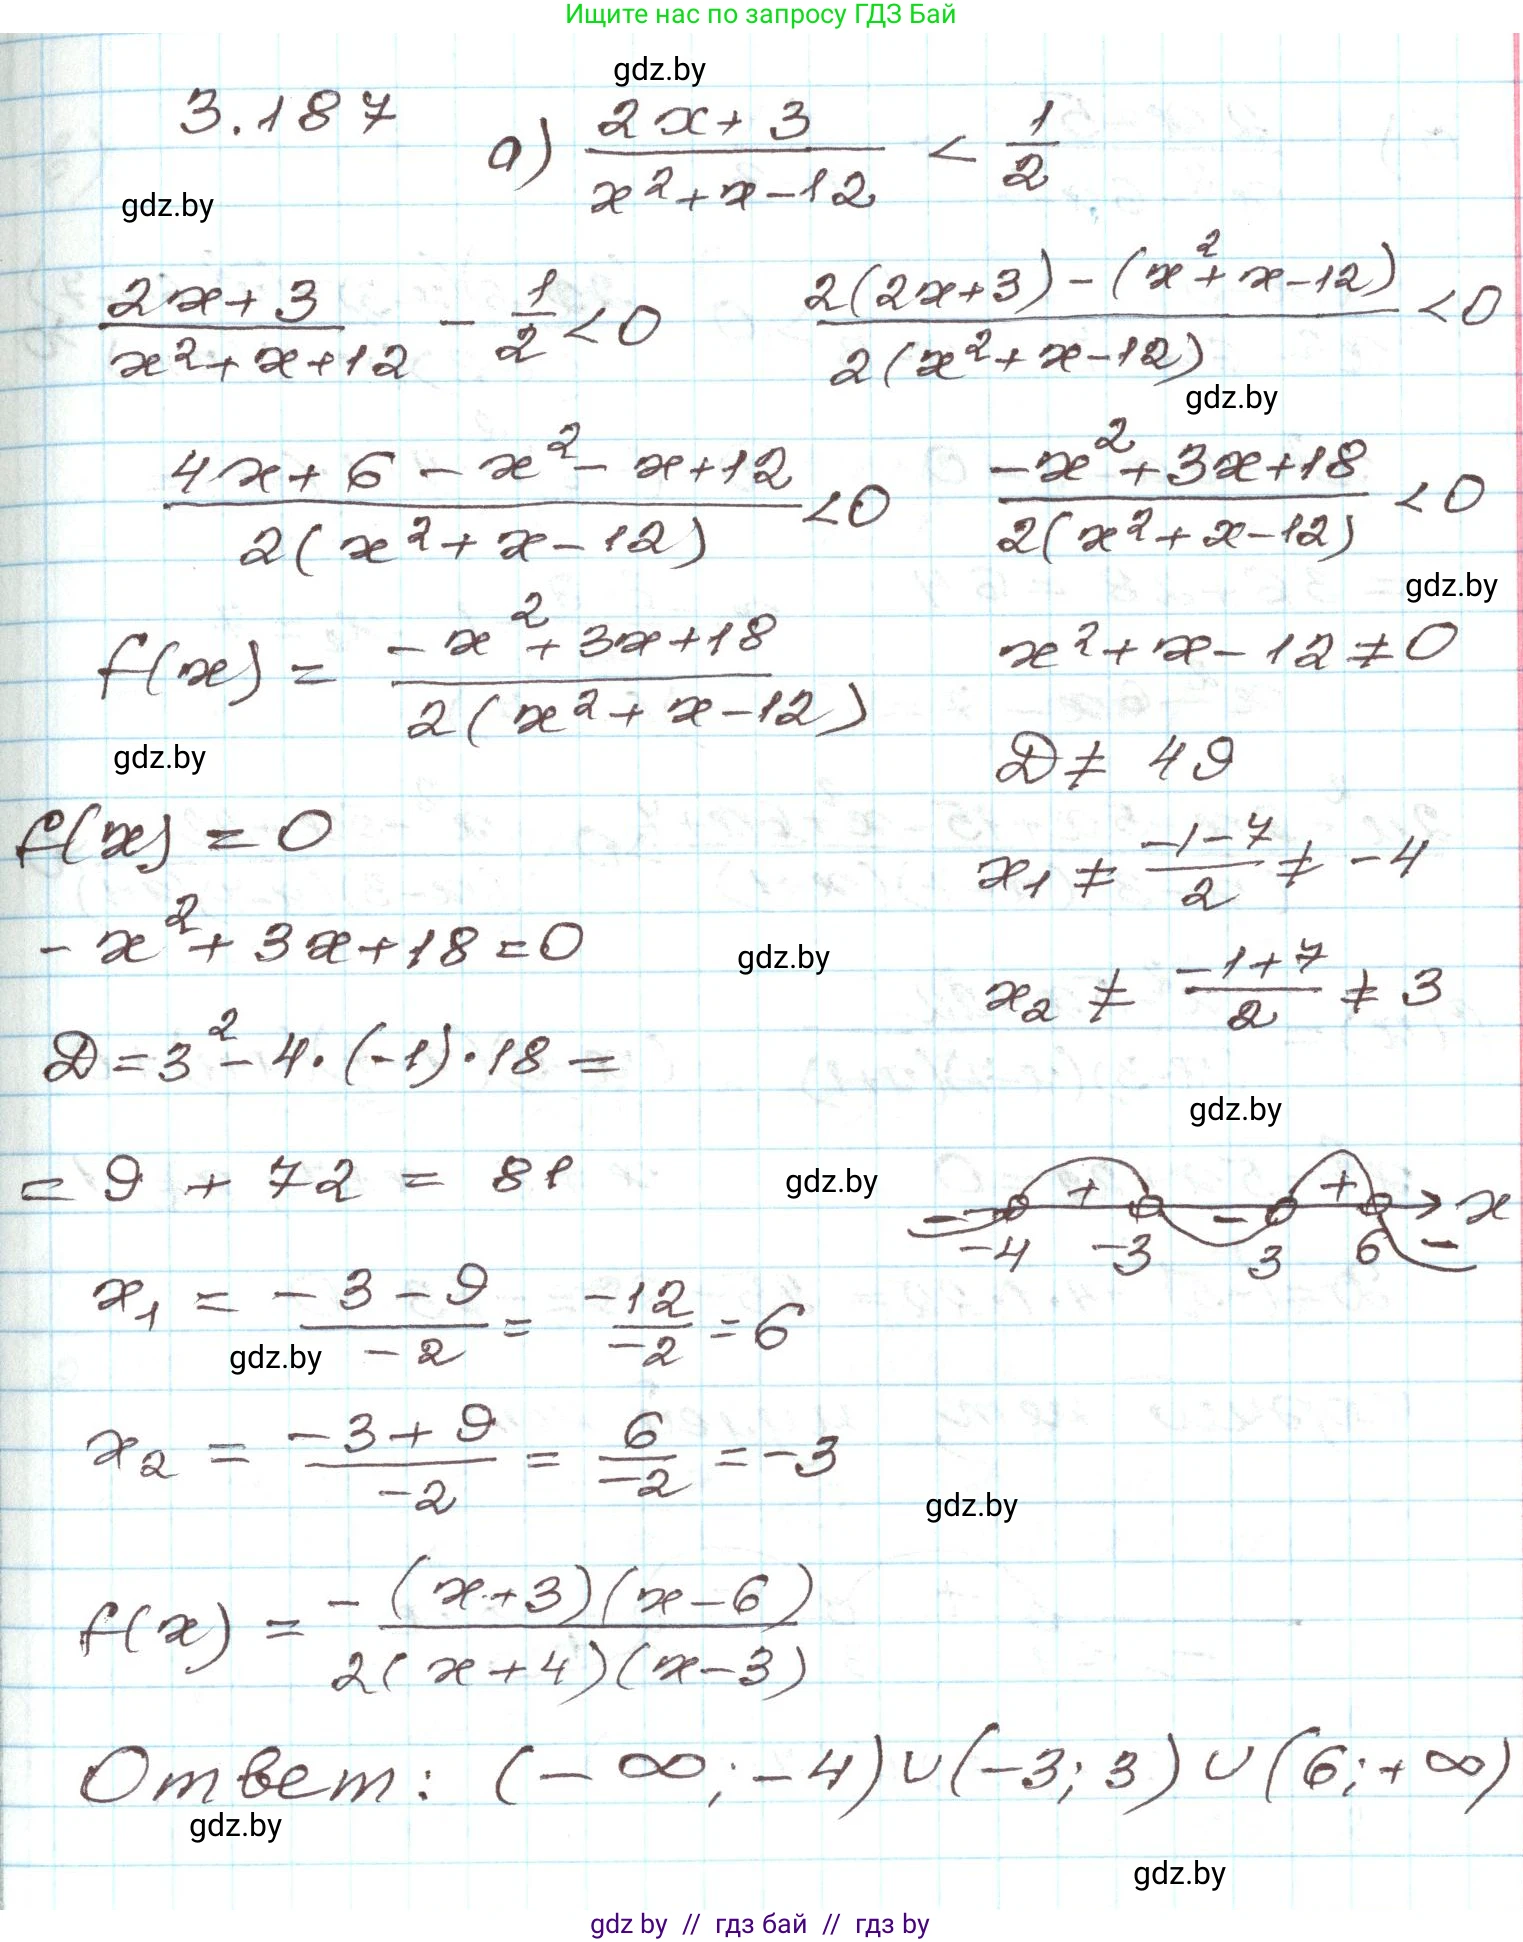 Ищите нас по запросу ГДЗ Бай
gdz.by
3.187 а) (2x+3)/(x²+x-12) < 1/2
gdz.by
(2x+3)/(x²+x+12) - 1/2 < 0    (2(2x+3)-(x²+x-12))/(2(x²+x-12)) < 0
gdz.by
(4x+6-x²-x+12)/(2(x²+x-12)) < 0    (-x²+3x+18)/(2(x²+x-12)) < 0
gdz.by
f(x) = (-x²+3x+18)/(2(x²+x-12))    x²+x-12≠0
gdz.by
D ≠ 49
f(x) = 0
x₁ ≠ (-1-7)/2 ≠ -4
-x²+3x+18=0
gdz.by
x₂ ≠ (-1+7)/2 ≠ 3
D=3²-4·(-1)·18=
gdz.by
= 9 + 72 = 81
gdz.by
- + - + - x
-4 -3 3 6
x₁ = (-3-9)/(-2) = (-12)/(-2) = 6
gdz.by
x₂ = (-3+9)/(-2) = 6/(-2) = -3
gdz.by
f(x) = -((x+3)(x-6))/(2(x+4)(x-3))
Ответ: (-∞;-4)∪(-3;3)∪(6;+∞)
gdz.by
gdz.by
gdz by // гдз бай // гдз by